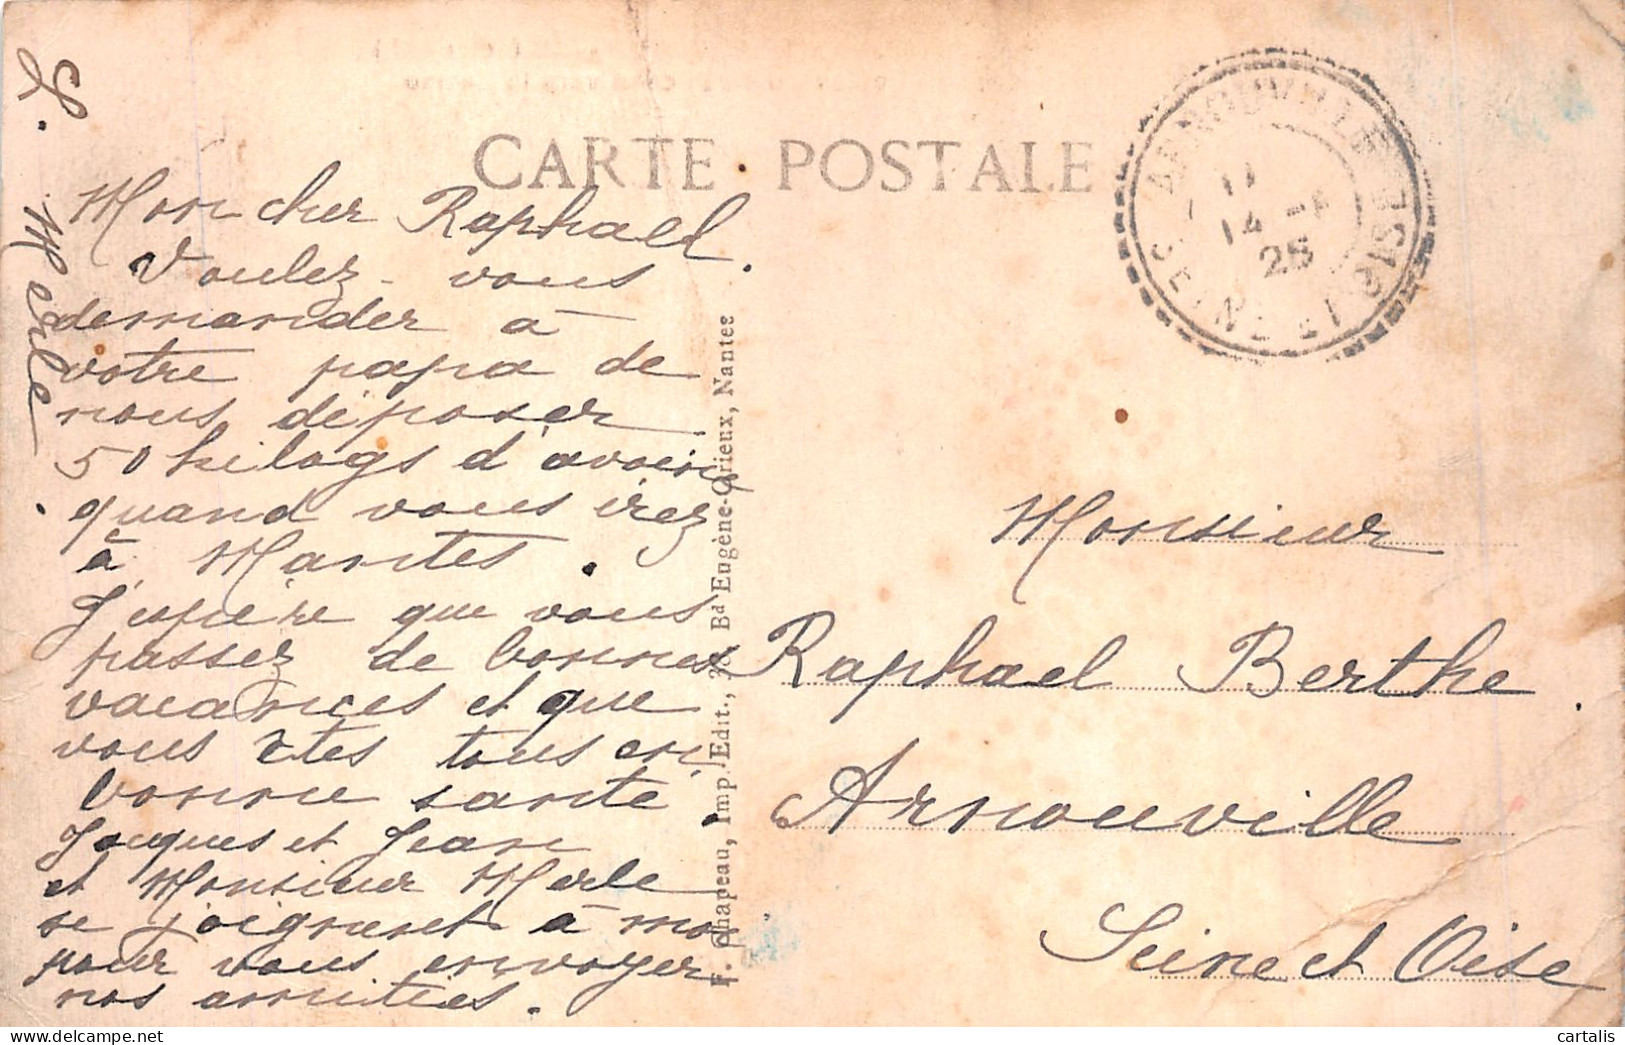 CARTE POSTALE
Mon cher Raphaël.
Voulez-vous
demander à
votre papa de
nous déposer
50 kilogs d'avoine
quand vous irez
à Mantes.
J'espère que vous
passez de bonnes
vacances et que
vous êtes tous en
bonne santé.
Jacques et Jean
et Monsieur Merle
se joignent à moi
pour vous envoyer
nos amitiés.
L. Merle.
F. Chapeau, Imp. Edit., Bd Eugène-Orieux, Nantes
ARNOUVILLE
14
25
SEINE ET OISE
Monsieur
Raphael Berthe.
Arnouville
Seine et Oise
cartalis